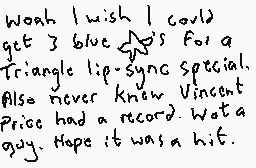 Woah I wish I could
get 3 blue ☆'s for a
Triangle lip-sync special.
Also never knew Vincent
Price had a record. Wot a
guy. Hope it was a hit.